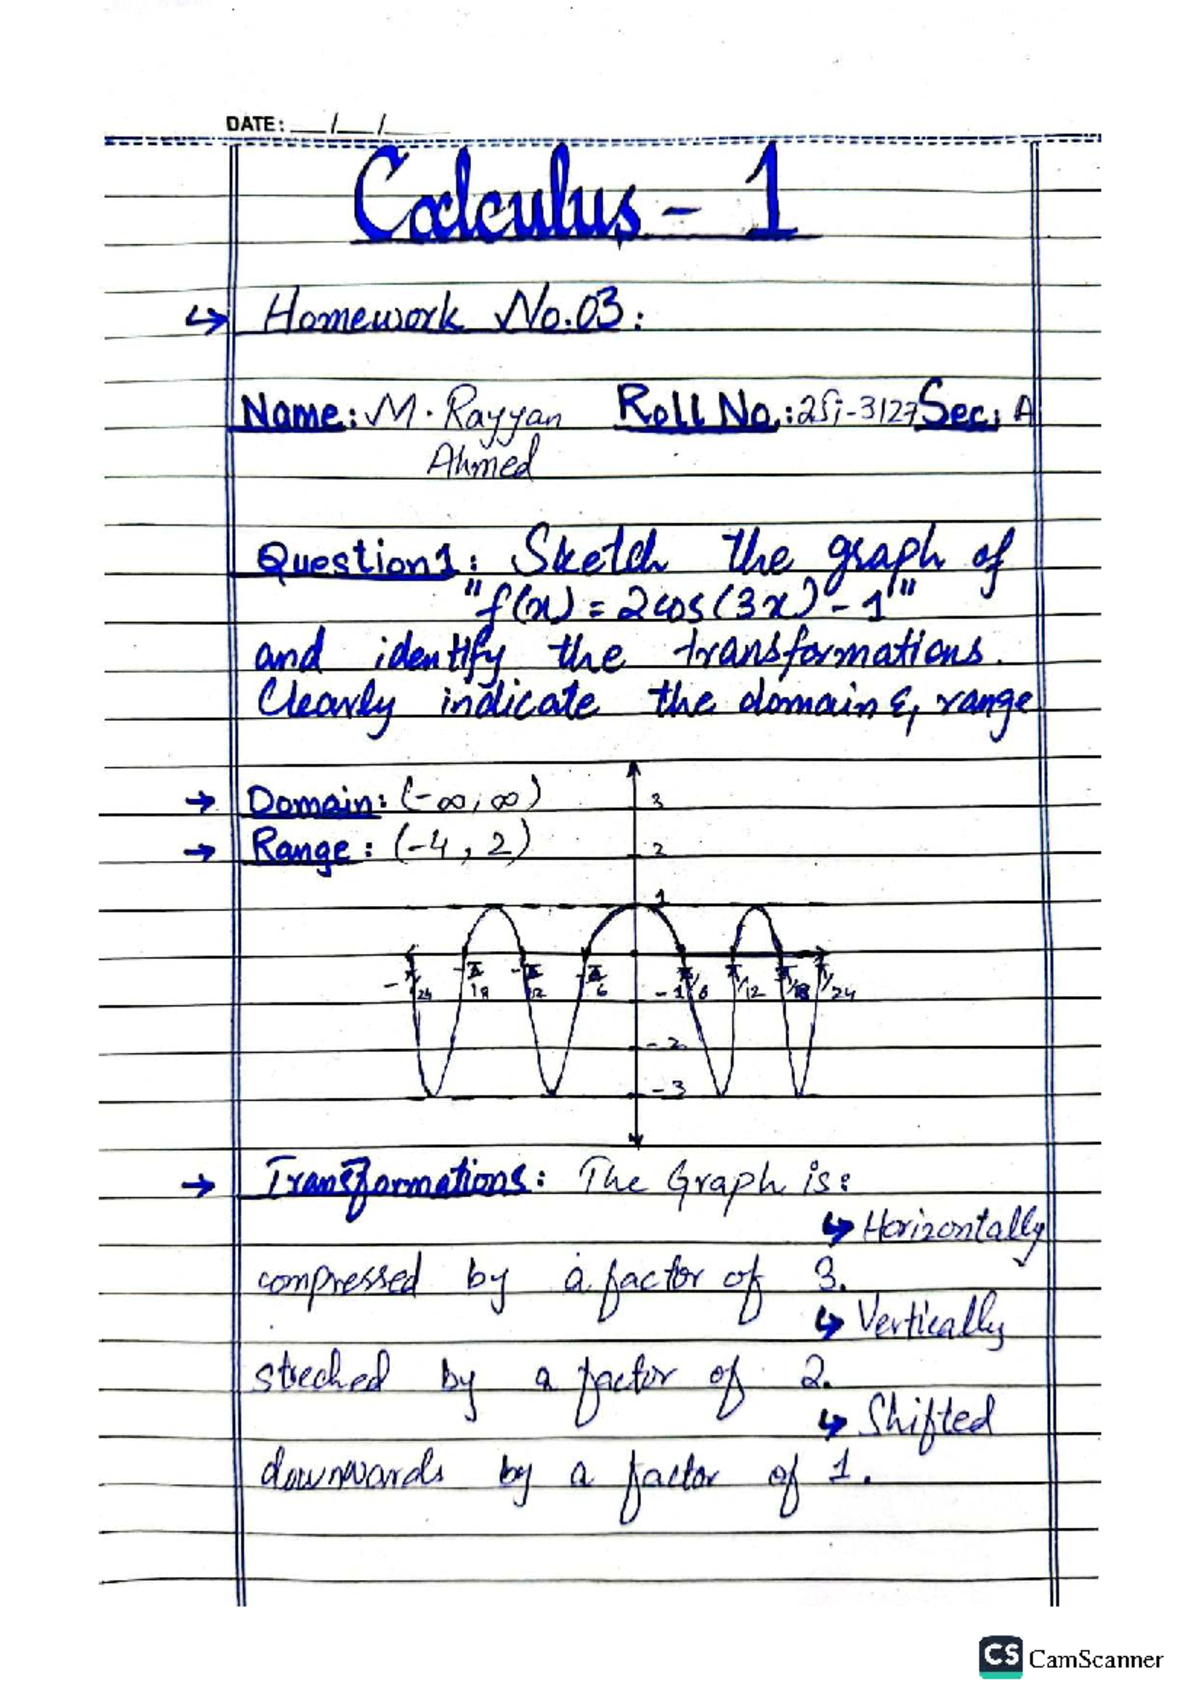 DATE: __/__/____
Calculus - 1
↳ Homework No.03:
Name: M. Rayyan Roll No.: 25i-3127 Sec: A
Ahmed
Question1: Sketch the graph of
"f(x) = 2cos(3x) - 1"
and identify the transformations.
Clearly indicate the domain & range
→ Domain: (-∞, ∞)
→ Range: (-4, 2)
3
2
1
-π/24 -π/18 -π/12 -π/6 -1 π/6 π/12 π/18 π/24
-2
-3
→ Transformations: The Graph is:
↳ Horizontally
compressed by a factor of 3.
↳ Vertically
streched by a factor of 2.
↳ Shifted
downwards by a factor of 1.
CS CamScanner